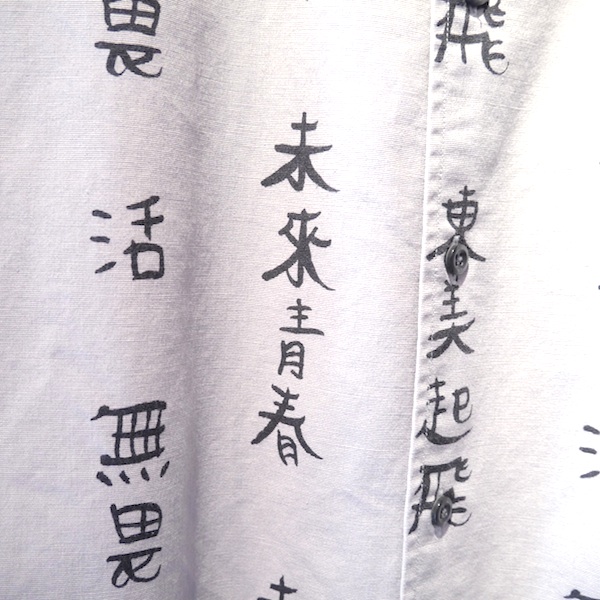 飛
東美起飛
未來青春
畏
活
無畏